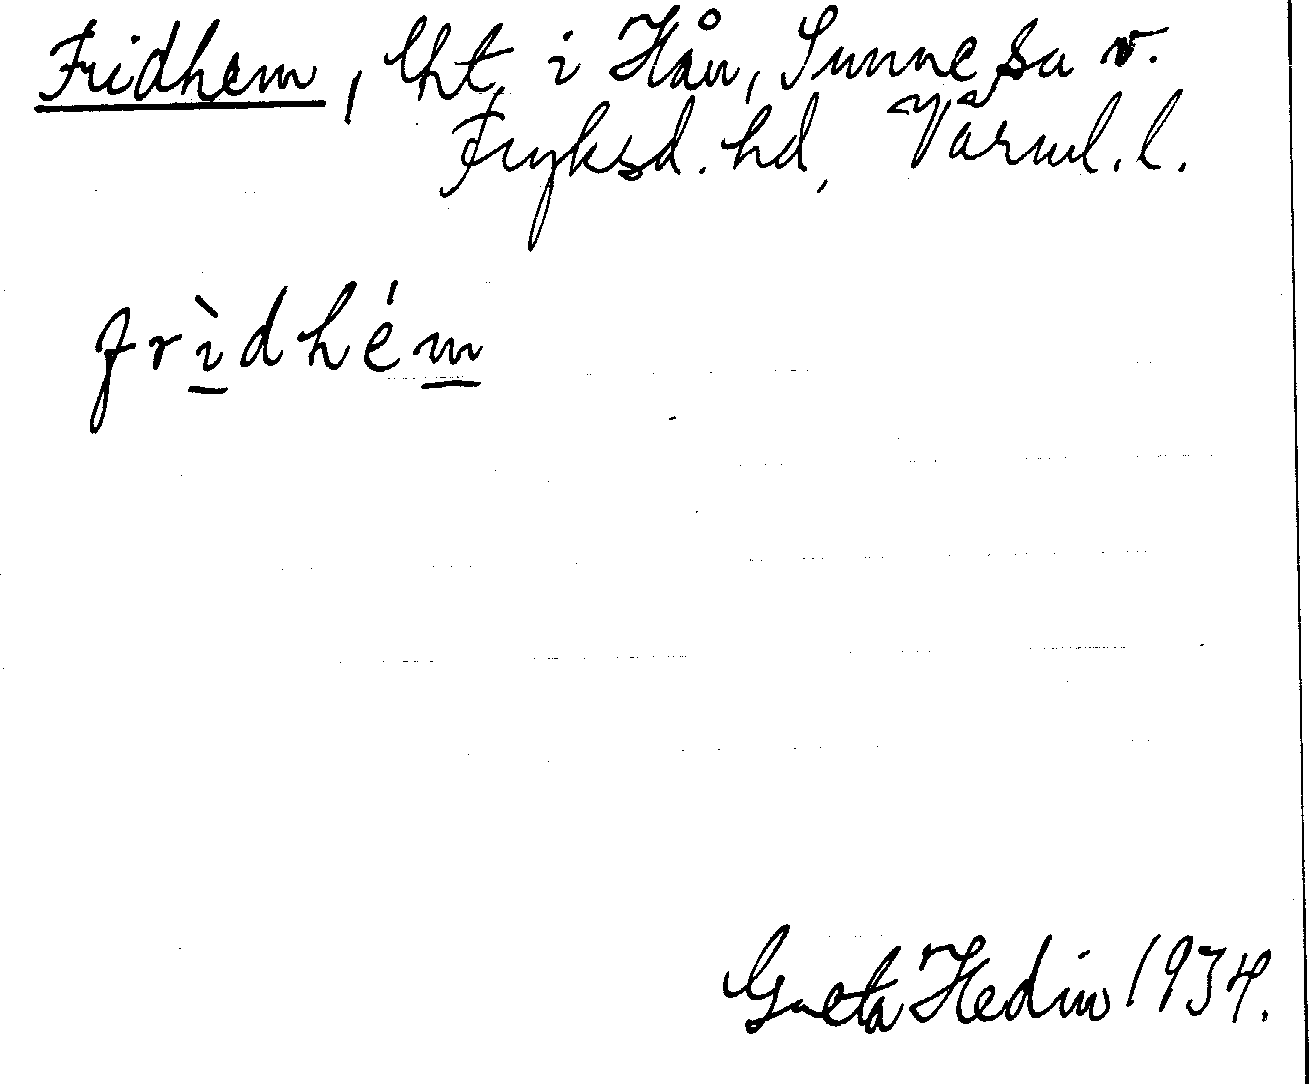 Fridhem, lht. i Hån, Sunne sn v.
Fryksd. hd, Värml. l.
frìdhém
Greta Hedin 1934.